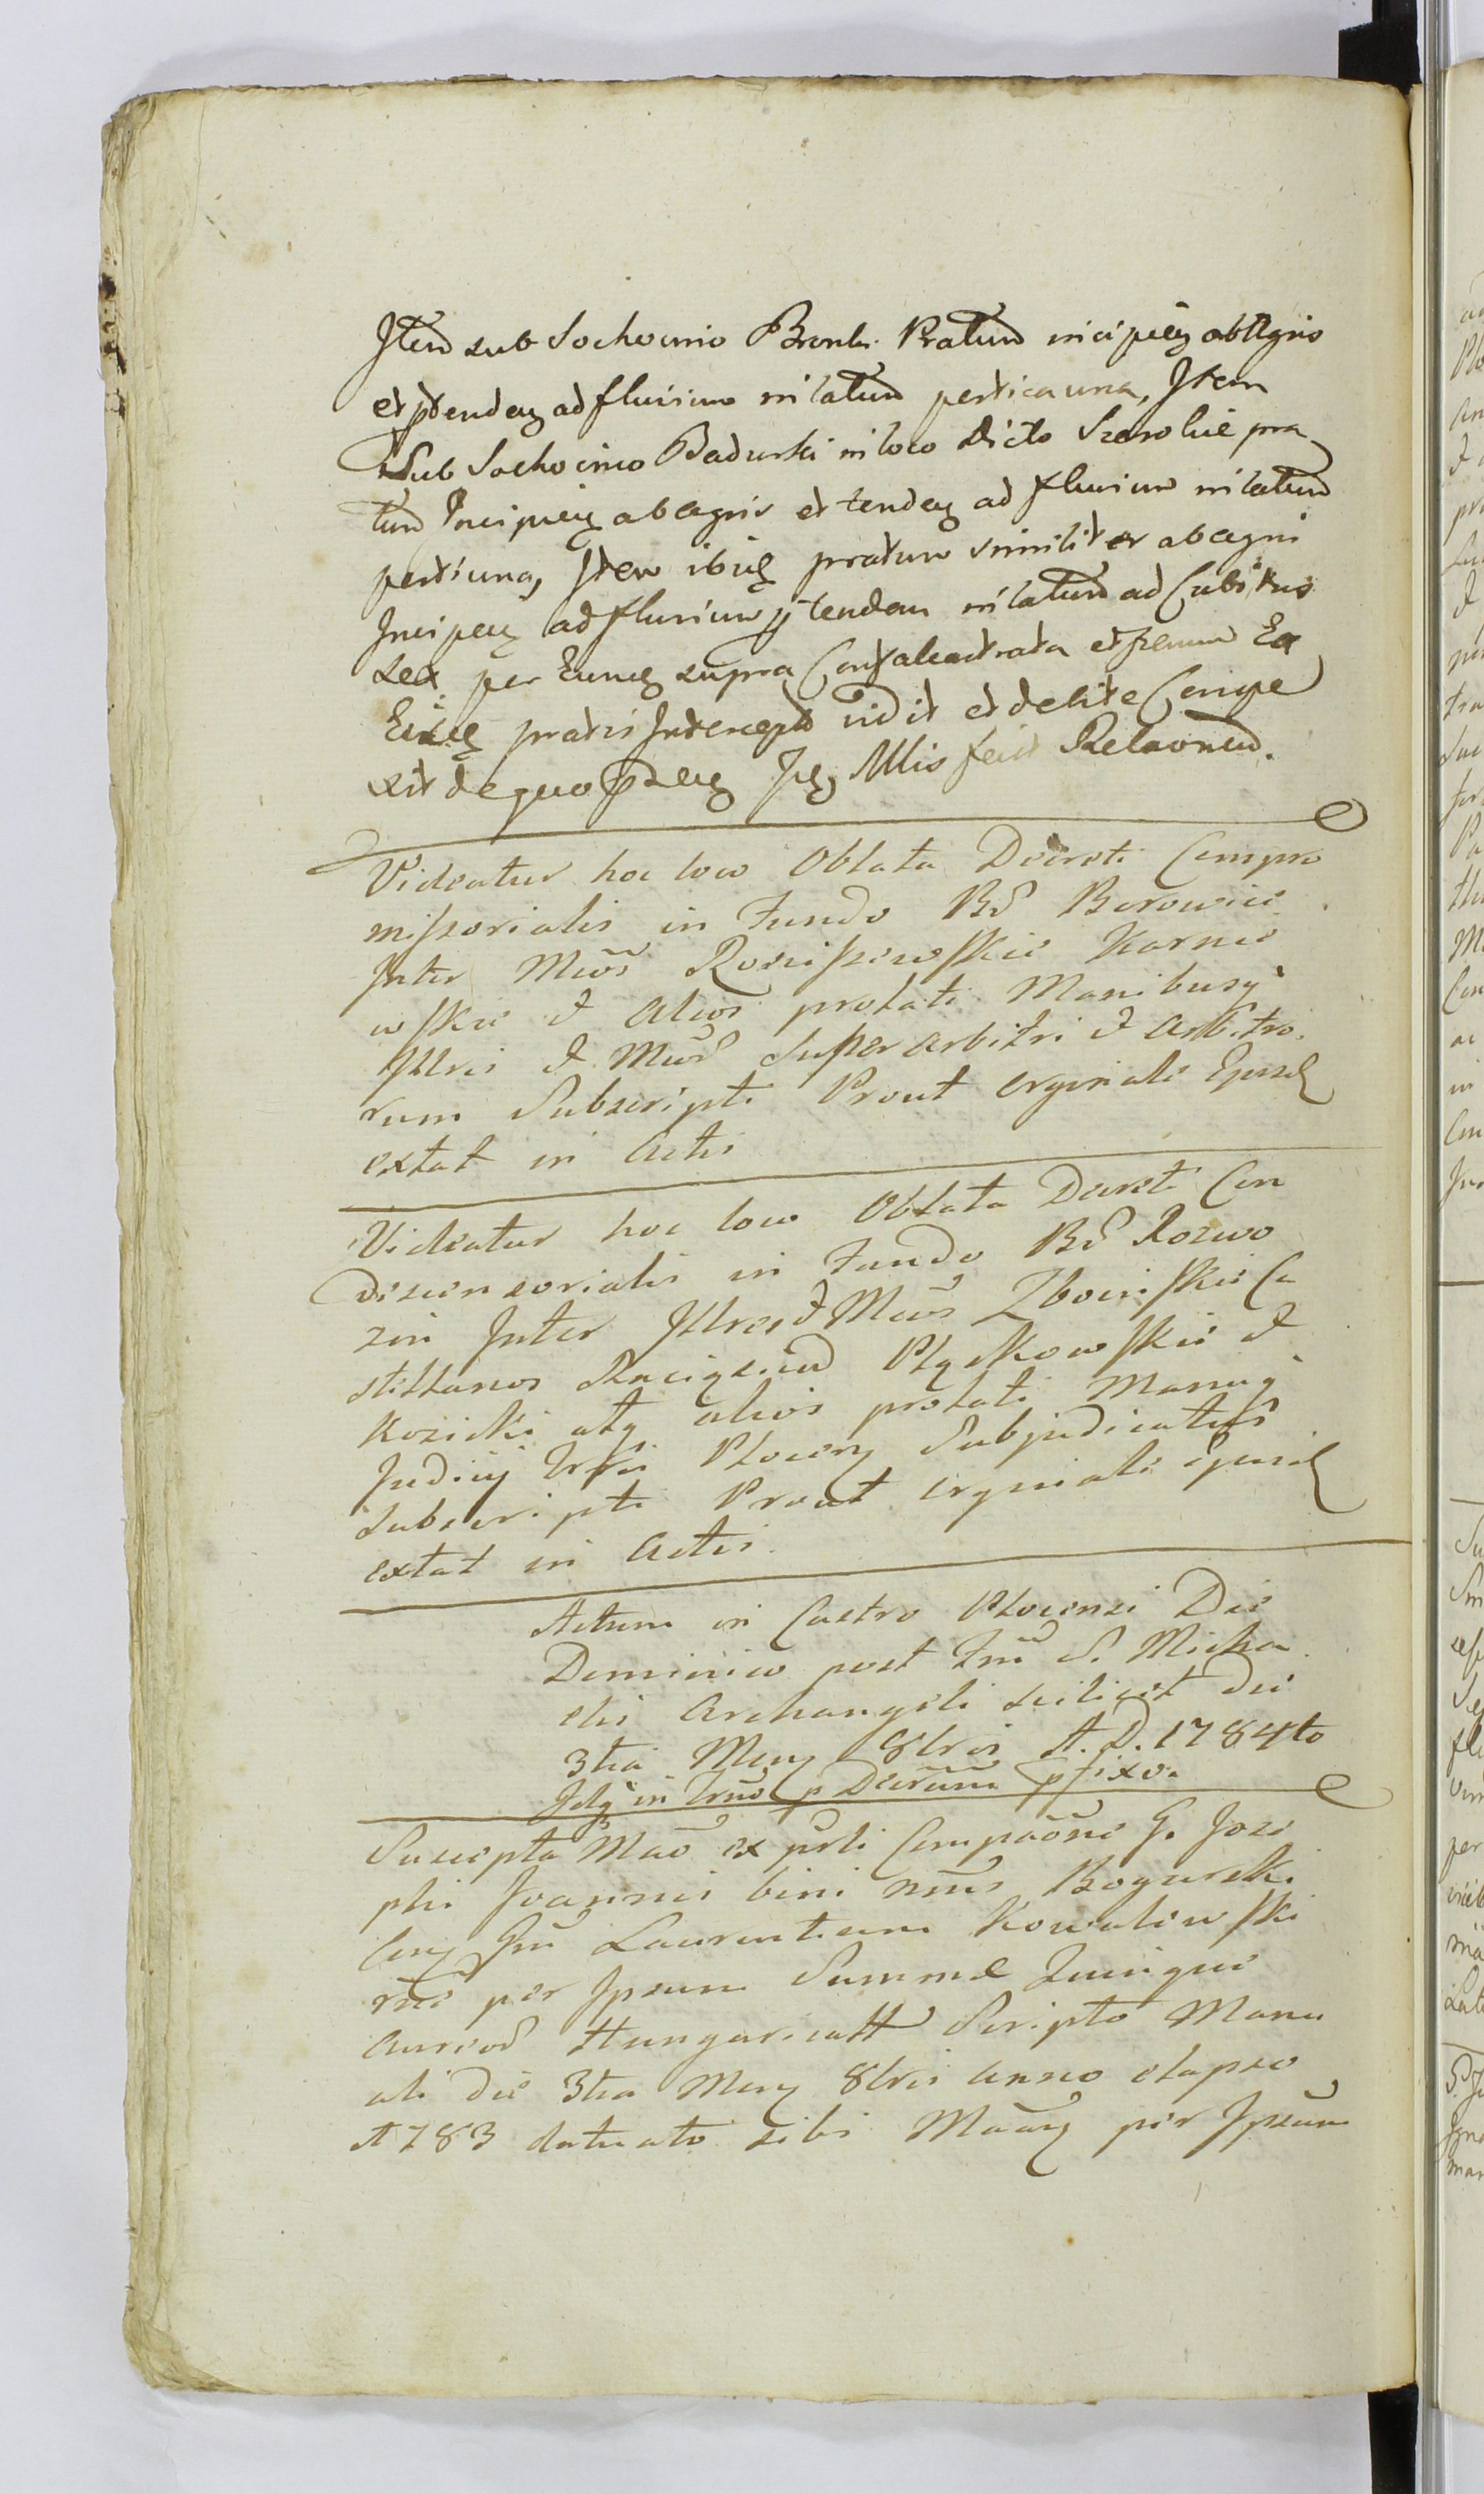 Item sub Sochocino Bronk. Pratum incipiens ab Agris
et ptendens ad fluvium in latum pertica una, Item
Sub Sochocino Badurki in loco dicto Szerokie pra
tum Incipiens ab agris et tendens ad fluvium in latum
perti una, Item ibid pratum similiter ab agri
Incipiens ad fluvium ptenden in latum ad Cubitus
sex per Eund supra Confalcastrata et fenum Ex
Eisd pratis Interceptum vidit et debite Conspe
xit de quo pms Idem Mlis fecit Relaonem.
Videatur hoc loco Oblata Decreti Compro
missorialis in Fundo Bor Borowice
Inter Mcos Rosciszewskie Karnie
wskie et alios prolati Manibusq
Illris et Mcor Super arbitri et arbitro
rum Subscripti Prout orginale Ejusd
extat in Actis
Videatur hoc loco Oblata Decreti Con
descensorialis in Fundo Bor Rozwo
zin Inter Illres et Mcos Zboinskie Ca
stellanos Raciązen Płąskowskie et
Kozicki atq alios prolati Manuq
Judicij Trris Plocen Subjudicatus
Subscripti Prout orginale Ejusd
extat in Actis.
Actum in Castro Plocensi Die
Dominico post Fm S. Micha
elis Archangeli scilicet die
3tia Mens 8bris A. D. 1784to
Idq in Trno p Decrum pfixo.
Suscepta Mao ex prti Compaone G. Jose
phi Joannis bini nms Bogurski
Cens Gm Laurentium Kowalewski
rne per Ipsum Summæ Quinque
aureor Hungaricall Scripto Manu
ali die 3tia Mens 8bris anno elapso
1783 datuato sibi Maan per Ipsum